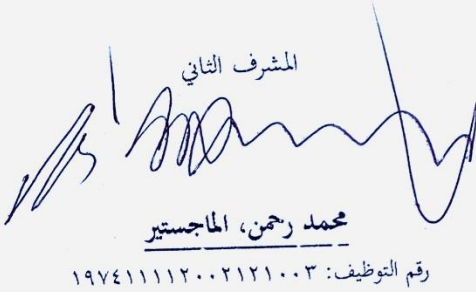 المشرف الثاني
محمد رحمن، الماجستير
رقم التوظيف: ١٩٧٤١١١١٢٠٠٢١٢١٠٠٣